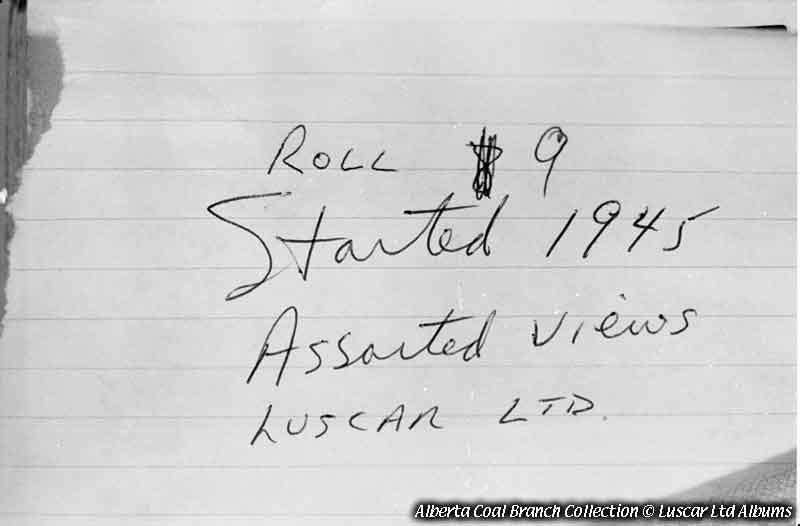 ROLL 9
Started 1945
Assorted views
LUSCAR LTD.
Alberta Coal Branch Collection © Luscar Ltd Albums